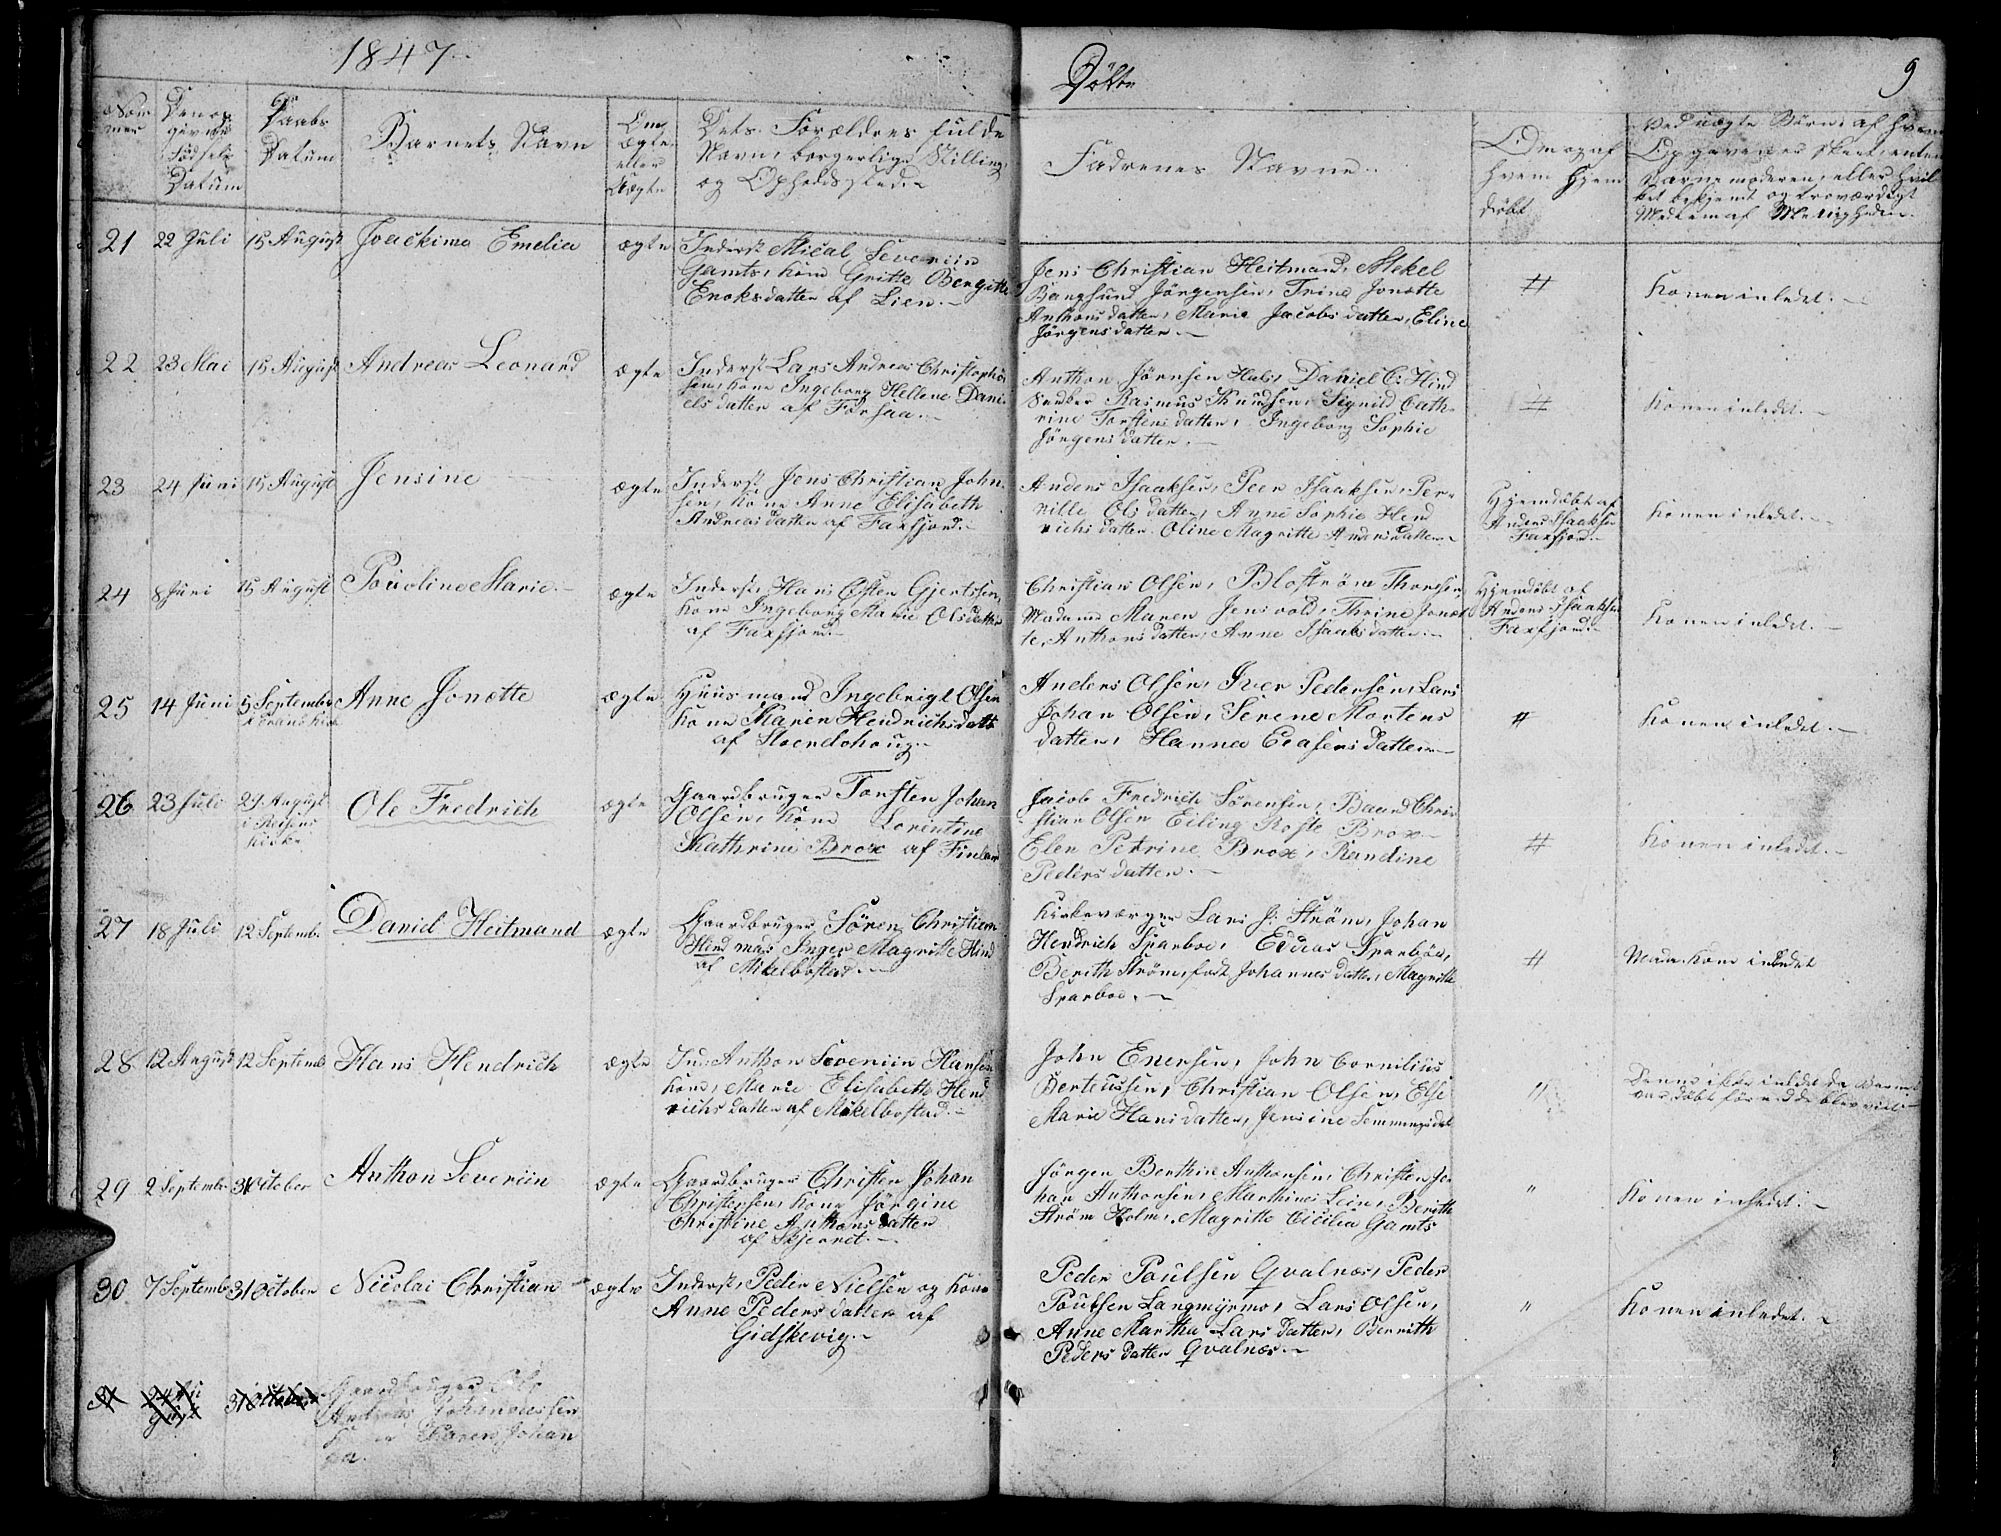 1847.
Døbte
9
Nom-
mer
Den op
givne
Fødsels
Datum
Daabs
Datum
Barnets Navn
Om
Ægte
eller
Uægte
Dets Forældres fulde
Navn, borgerlige Stilling
og Opholdssted.
Faderenes Navne.
Om og af
hvem hjem
døbt
Ved uægte Børn, af hvem
Opgaven er skeet, enten
Barnemoderen, eller hvil-
ket bekjendt og troværdigt
Medlem af Menigheden.
21 22 Juli 15 August Joackima Emelia ægte Inderst Mical Severiin
Gamts, Kone Gritte Bergitte
Enoksdatter af Lien.
Jens Christian Heitmand, Mekel
Bangsund Jørgensen, Trine Jonette
Anthonsdatter, Marie Jacobsdatter, Eline
Jørgensdatter.
#
Konen inledet.
22 23 Mai 15 August Andreas Leonard ægte Inderst Lars Andreas Christophe
sen, Kone Ingeborg Hellene Dani-
elsdatter af Forsaa.
Anthon Jørnsen Hals, Daniel C. Hind
Rasmus Knudsen, Signild Cath-
rine Torstensdatter, Ingeborg Sophie
Jørgensdatter.
#
Konen inledet.
23 24 Juni 15 August Jensine ægte Inderst Jens Christian John-
sen, Kone Anne Elisabeth
Andreasdatter af Faxfjord.
Anders Isaaksen, Peer Isaaksen, Per-
nille Olsdatter, Anne Sophie Hend
richsdatter Oline Magritte Andersdatter.
Hjemdøbt af
Anders Isaaksen
Faxfjord.
Konen inledet.
24 8 Juni 15 August Poulina Marie. ægte Inderst, Hans Østen Gjertsen,
Kone Ingeborg Marie Olsdatter
af Faxfjord.
Christian Olsen, Blostrøm Thorsen,
Madame Maren Jensvold, Thrine Jonet
te Anthonsdatter, Anne Isaaksdatter.
Hjemdøbt af
Anders Isaaksen
Faxfjord.
Konen inledet.
25 14 Juni 5 September Anne Jonette ægte Huusmand Ingebrigt Olsen
Kone Maren Hendrichsdatt
af
Anders Olsen, Iver Pedersen, Lars
Johan Olsen, Serene Mortens
datter, Hanna datter
#
Konen inledet.
26 23 Juli 29 August
i
Kirke
Ole Fredrich ægte Gaardbruger Torsten Johan
Olsen, Kone Lorentine
Kathrine Brox af Finland
Jacob Fredrich Sørensen, Baard Chri
stian Olsen Eiling Rofte Brox
Elen Petrine Brox, Randine
Pedersdatter.
#
Konen inledet.
27 18 Juli 12 Septembr Daniel Heitmand ægte Gaardbruger Søren Christian
Hind mad. Inger Magritte Hind
af Mikelbostad.
Kirkeværger Lars J. Strøm, Johan
Hendrich Sparboe, Edeas Sparboe,
Berith Strøm, født Johannesdatter, Magritte
Sparboe.
#
Mad. Kone inledet
28 12 August 12 Septembr Hans Hendrich ægte Ind. Anthon Severiin Hansen
Kone, Marie Elisabeth Hend
richsdatter af Mikelbostad.
John Enersen, John Cornilius
Berteussen, Christian Olsen, Else
Marie Hansdatter, Jensine Semmingsdat
"
Denne ikke inledet da Barnet
var døbt før end de blev viet
29 2 Septembr 31 October Anthon Severiin ægte Gaardbruger Christen Johan
Christensen, Kone Jørgine
Christine Anthonsdatter
af Skjevret.
Jørgen Berthin Anthonsen, Christen Jo-
han Anthonsen, Marthines Lein, Berith
Strøm Holm, Magritte Cicilia Gamts
"
Konen inledet.
30 7 Septembr 31 October Nicolai Christian ægte Inderst, Peder Nielsen og Kone
Anne Pedersdatter af
Gidskevig.
Peder Poulsen Qvalnes, Peder
Poulsen Langmyrmo, Lars Olsen,
Anne Martha Larsdatter, Berrith
Pedersdatter Qvalnes.
"
Konen inledet.
31 24 Au
gust
31 October Gaardbruger Ole
Andreas Johannessen
Karen Johan
na.